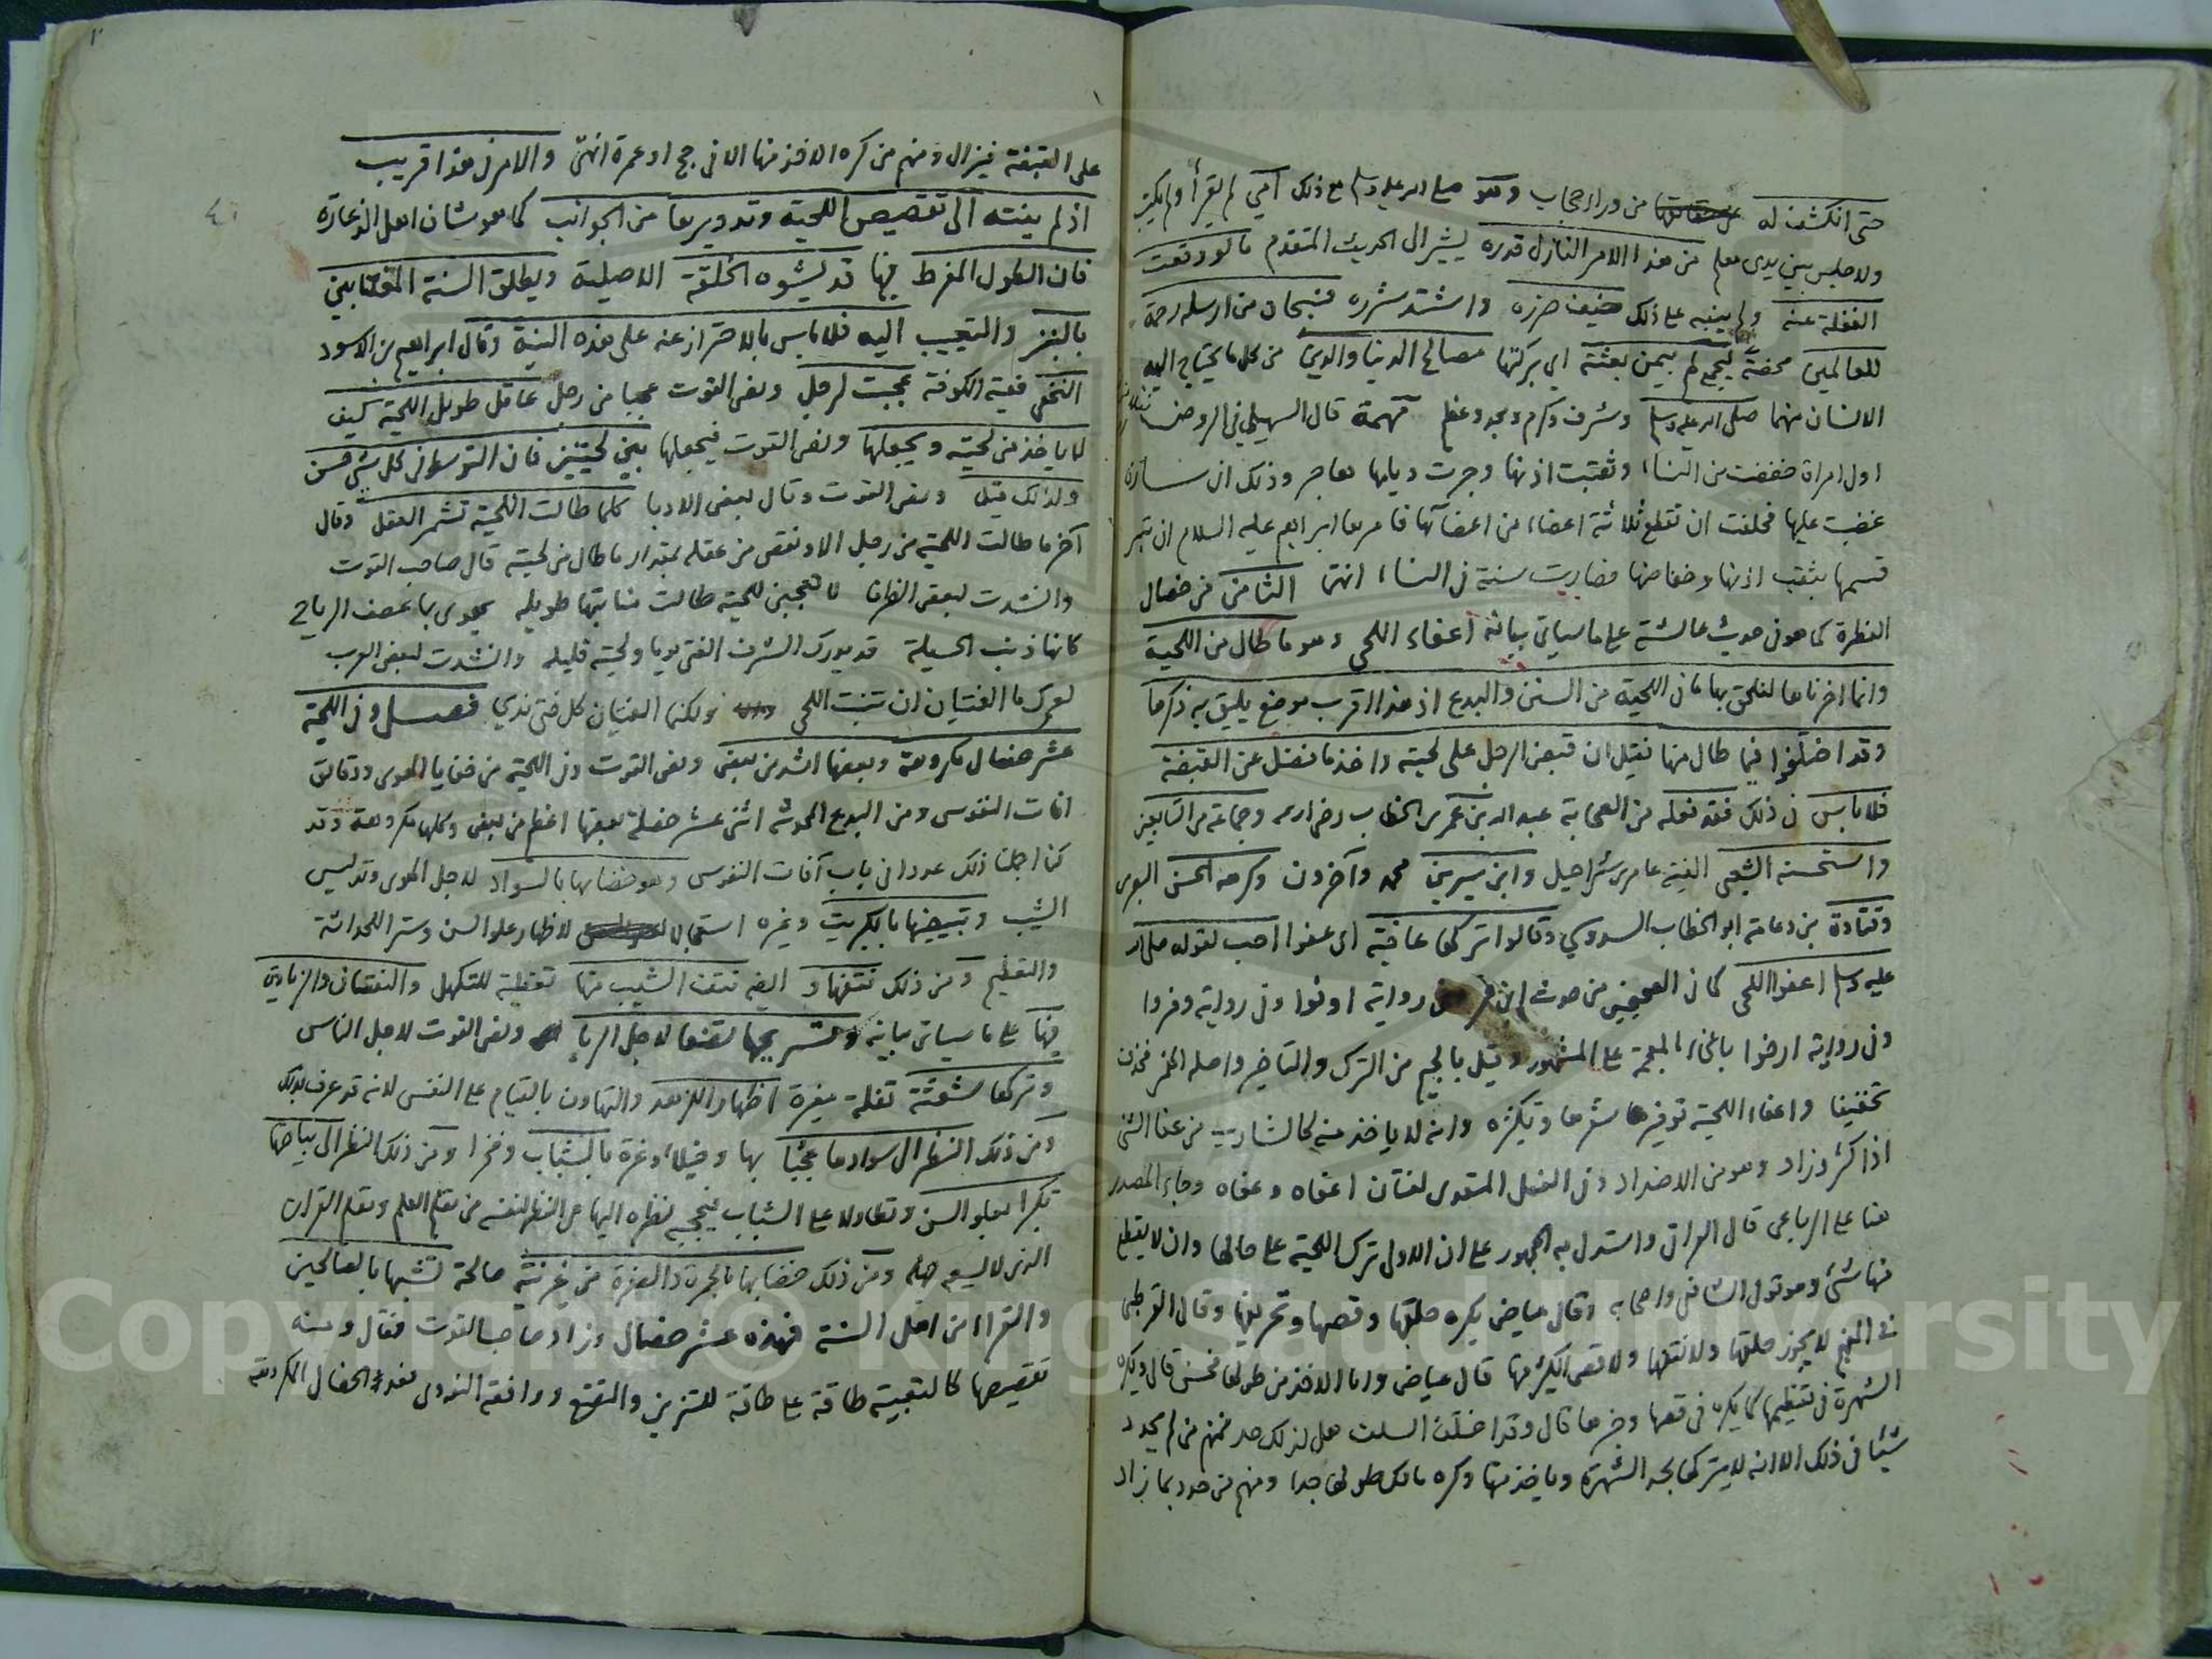 حتى انكشف له من وراء حجاب وهو صلى الله عليه وسلم مع ذلك أمي لم يقرأ ولم يكتب
ولا جلس بين يدي معلم من هذا الامر النازل قدره يشير الى الحديث المتقدم ما لو وقعت
الغفلة عنه ولم ينبه على ذلك خيف ضرره واشتد شرره فسبحان من ارسله رحمة
للعالمين محضة ليجمع لهم بيمن بعثته اى بركتها مصالح الدنيا والدين من كل ما يحتاج اليه
الانسان منهما صلى الله عليه وسلم وشرف وكرم ومجد وعظم مهمة قال السهيلي في الروض
اول امراة خفضت من النساء وثقبت اذنها وجرت ذيلها هاجر وذلك ان سارة
غضبت عليها فحلفت ان تقطع ثلاثة اعضاء من اعضائها فامرها ابراهيم عليه السلام ان تبر
قسمها بثقب اذنها وخفاضها فصارت سنة في النساء انتهى الثامن من خصال
الفطرة كما هو في حديث عائشة على ما سياتى بيانه اعفاء اللحى وهو ما طال من اللحية
وانما اخرناها لنلحق بها ما في اللحية من السنن والبدع اذ هذا اقرب موضع يليق به ذكرها
وقد اختلفوا فيما طال منها فقيل ان قبض الرجل على لحيته واخذ ما فضل عن القبضة
فلا باس في ذلك فقد فعله من الصحابة عبد الله بن عمر بن الخطاب وجماعة من التابعين
واستحسنه الشعبي الفقيه عامر بن شراحيل وابن سيرين محمد وآخرون وكرهه الحسن البصري
وقتادة بن دعامة ابو الخطاب السدوسي وقالوا تركها عافية اى عفوا احب لقوله صلى الله
عليه وسلم اعفوا اللحى كما في الصحيحين من حديث رواية اوفوا وفى رواية وفروا
وفى رواية ارخوا بالخاء المعجمة على المشهور وقيل بالجيم من الترك والتاخير واصله الهمز فحذفت
تخفيفا واعفاء اللحية توفير شعرها وتكثره وانه لا ياخذ منه كالشارب من عفا الشئ
اذا كثر وزاد وهو من الاضداد وفى الفعل المتعدى لغتان اعفاه وعفاه وجاء المصدر
هنا على الرباعى قال العراقى واستدل به الجمهور على ان الاولى ترك اللحية على حالها وان لا يقطع
منها شئ وهو قول الشافعى واصحابه وقال عياض يكره حلقها وقصها وتحريقها وقال القرطبى
في المفهم لا يجوز حلقها ولا نتفها ولا قص الكثير منها قال عياض واما الاخذ من طولها فحسن قال ويكره
الشهرة في تعظيمها كما يكره في قصها وجزها قال وقد اختلف السلف هل لذلك حد فمنهم من لم يحدد
شيئا في ذلك الا انه لا يتركها لحد الشهرة وياخذ منها وكره مالك طولها جدا ومنهم من حدد بما زاد
على القبضة فيزال ومنهم من كره الاخذ منها الا في حج او عمرة انتهى والامر في هذا قريب
اذ لم ينته الى تقصيص اللحية وتدويرها من الجوانب كما هو شان اهل الذعارة
فان الطول المفرط فيها قد يشوه الخلقة الاصلية ويطلق السنة المغتابين
بالنبز والتعييب اليه فلا باس بالاحتراز عنه على هذه النية وقال ابراهيم بن الاسود
النخعى فقيه الكوفة عجبت لرجل ونص القوت عجبا من رجل عاقل طويل اللحية كيف
لا ياخذ من لحيته ويجعلها ونص القوت فيجعلها بين لحيتين فان التوسط في كل شئ حسن
ولذلك قيل ونص القوت وقال بعض الادبا كلما طالت اللحية تشمر العقل وقال
آخر ما طالت اللحية من رجل الا ونقص من عقله بمقدار ما طال من لحيته قال صاحب القوت
وانشدت لبعض الظرفا لا تعجبن للحية طالت منابتها طويله يهوى بها عصف الرياح
كانها ذنب الحسيلة قد يدرك الشرف الفتى يوما ولحيته قليله وانشدت لبعض العرب
لعمرك ما الفتيان ان تنبت اللحى ولكنما الفتيان كل فتى ندي فصل وفى اللحية
عشر خصال مكروهة وبعضها اشد من بعض ونص القوت وفى اللحية من خفايا الهوى ودقائق
افات النفوس ومن البدع المحدثة اثنى عشر خصلة بعضها اعظم من بعض وكلها مكروهة وقد
كنا اجملنا ذلك عددا في باب آفات النفوس وهو خضابها بالسواد لاجل الهوى وتدليس
الشيب وتبييضها بالكبريت وغيره استعجالا لاظهار علو السن وستر الحداثة
والتعظيم ومن ذلك نتفها و نتف الشيب منها تغطية للتكهل والنقصان والزيادة
فيها على ما سياتى بيانه وتسريحها تصنعا لاجل الرياء ونص القوت لاجل الناس
وتركها شعثة تفلة مغبرة اظهارا للزهد والتهاون بالقيام على النفس لانه قد عرف بذلك
ومن ذلك النظر الى سوادها عجبا بها وخيلاء وغرة بالشباب وفخرا ومن ذلك النظر الى بياضها
تكبرا بعلو السن وتطاولا على الشباب فيحجبه نظره اليها عن النظر لنفسه من تعلم العلم وتعلم القران
الذى لا يسعه جهله ومن ذلك خضابها بالحمرة والصفرة من غير نية صالحة تشبها بالصالحين
والقراء من اهل السنة فهذه عشر خصال وزاد صاحب القوت فقال ومنه
تقصيصها كالتعبية طاقة على طاقة للتزين والتصنع ووافقه النووى فعد الخصال المكروهة